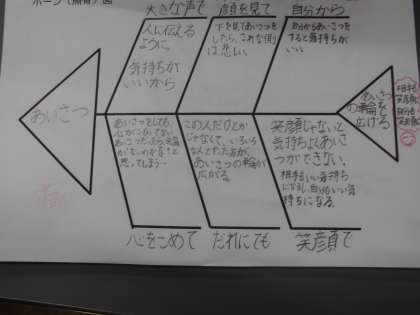 ボーン（魚骨）図
大きな声で
顔を見て
自分から
人に伝える
ように
気持ちが
いいから
下を見てあいさつを
したら、された側
は悲しい。
自分からあいさつを
すると気持ちが
いい
あいさつ
あいさつ
の輪を
広げる
相手も
笑顔
自分も
笑顔
あいさつをしても、
心がこもってない
思ってしまう…
この人だけとか
じゃなくて、いろいろ
な人とした方が、
あいさつの輪が
広がる。
笑顔じゃないと
気持ちよくあいさ
つができない。
相手もいい気持ち
になるし、自分もいい気
持ちになる。
心をこめて
だれにでも
笑顔で